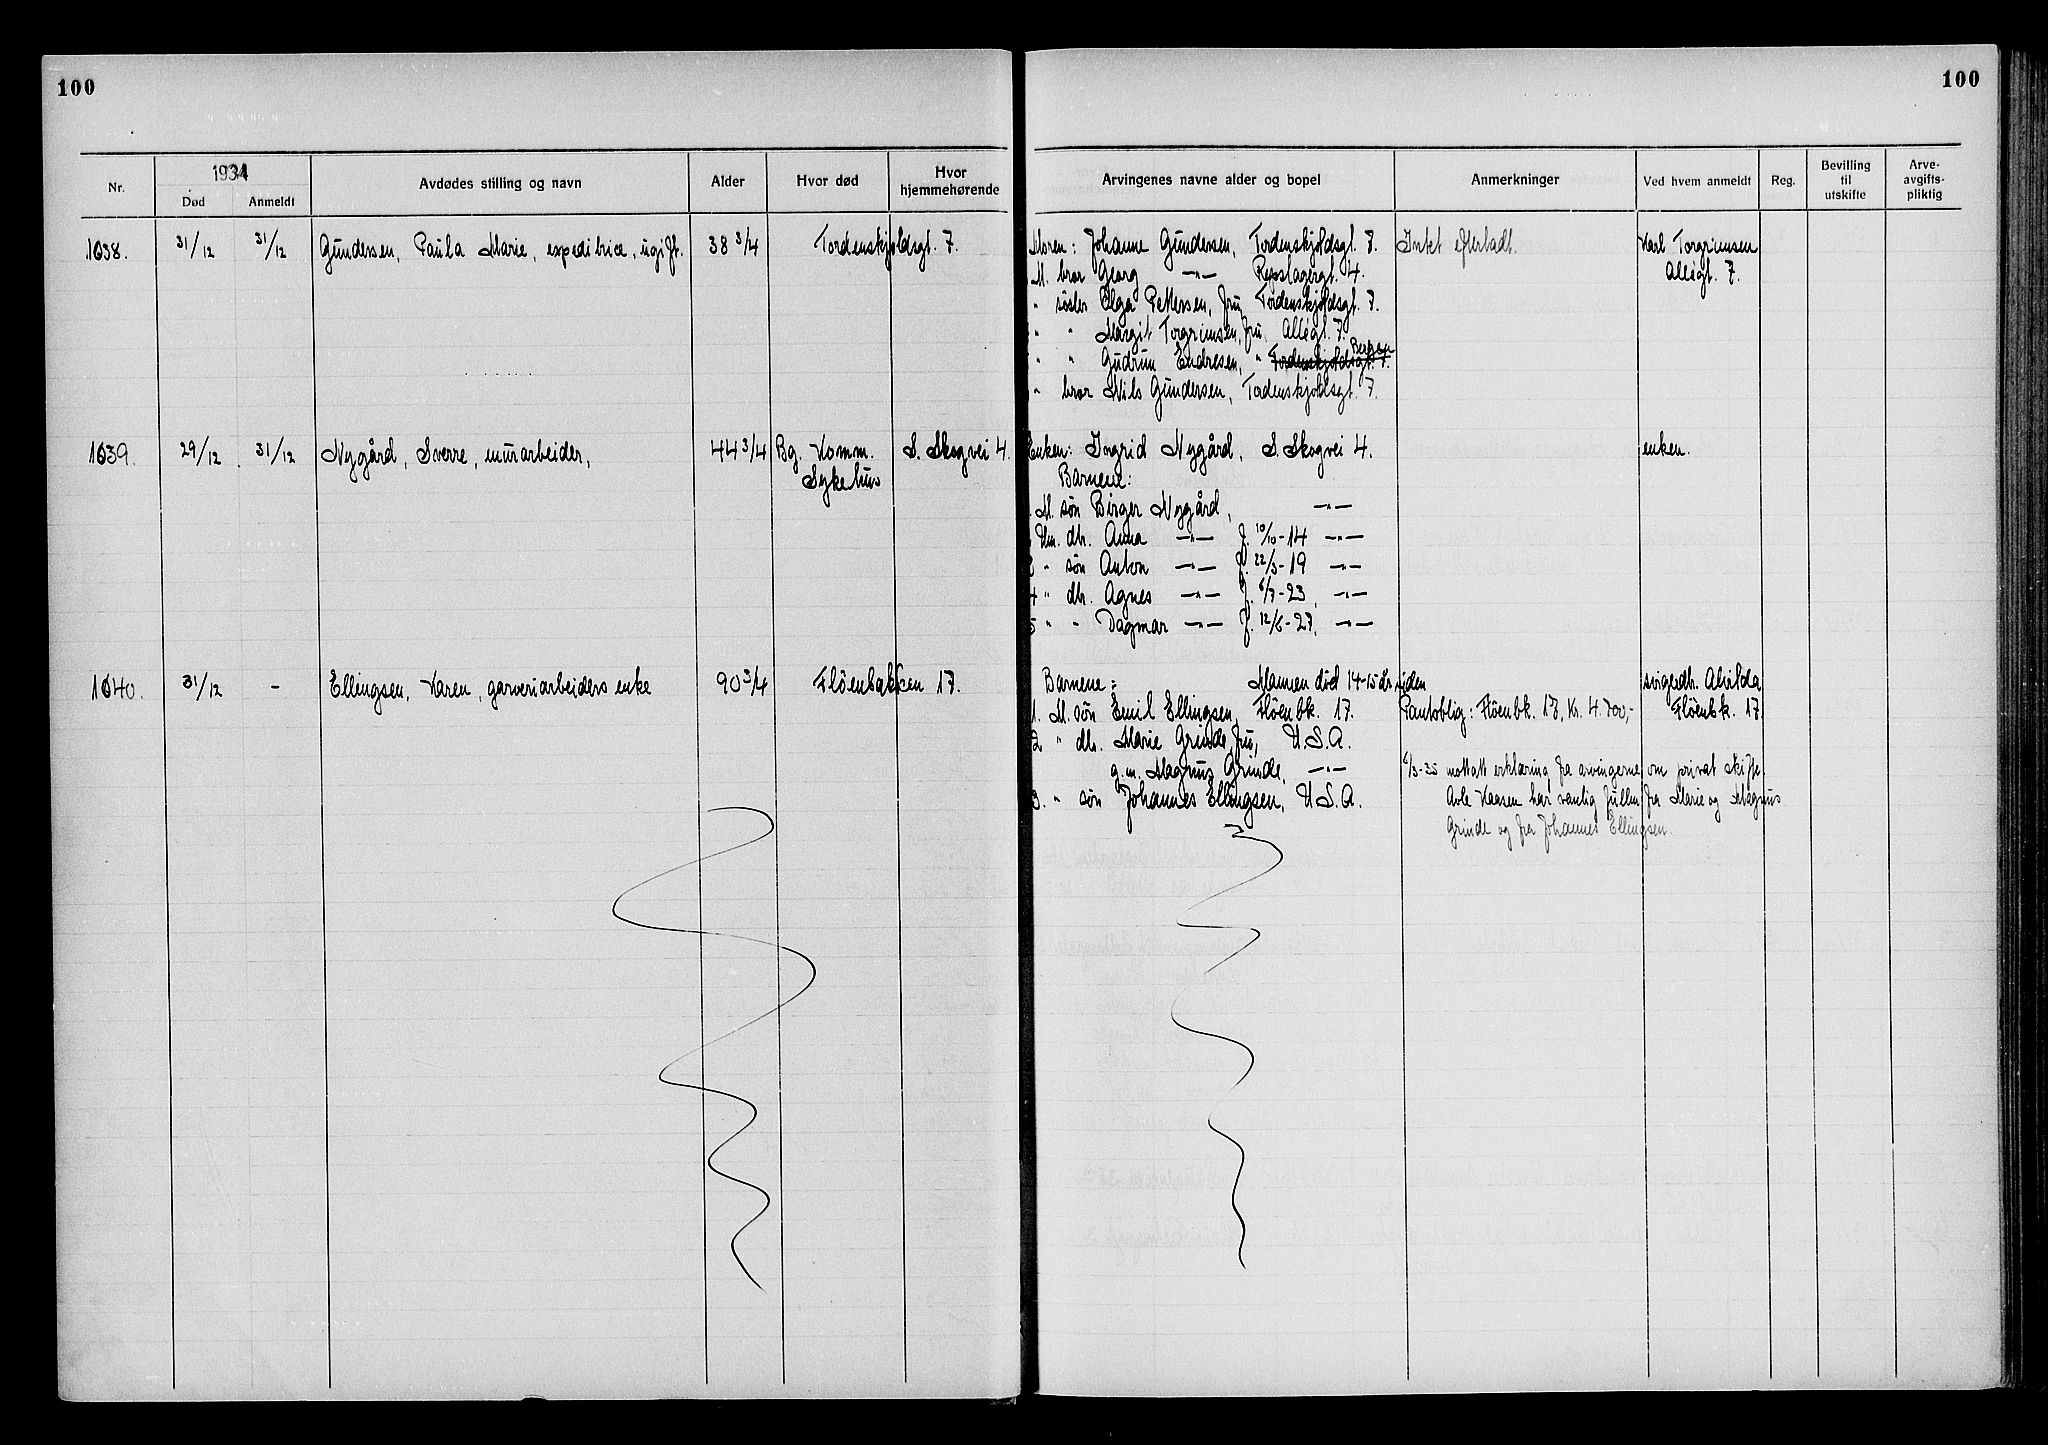 100
100
Nr.
1934
Død
Anmeldt
Avdødes stilling og navn
Alder
Hvor død
Hvor hjemmehørende
Arvingenes navne alder og bopel
Anmerkninger
Ved hvem anmeldt
Reg.
Bevilling til utskifte
Arve-avgifts-pliktig
1638. 31/12 31/12 Gundersen, Paula Marie, expeditrice, ugift. 38 3/4 Tordenskjoldsgt. 7. Moren: Johanne Gundersen, Tordenskjoldsgt. 7. Intet efterladt. Karl Torgrimsen
M. bror Georg —"— Repslagergt. 4. Allégt. 7.
" søster Olga Pettersen, fru, Tordenskjoldsgt. 7.
" " Margit Torgrimsen, fru, Allégt. 7.
" " Gudrun Endresen, " Tordenskjoldsgt. 7. Bergen
" bror Nils Gundersen, Tordenskjoldsgt. 7.
1639. 29/12 31/12 Nygård, Sverre, murarbeider, 44 3/4 Bg. Komm. S. Skogvei 4. Enken: Ingrid Nygård, S. Skogvei 4. enken.
Sykehus Barnene:
M. søn Birger Nygård, —"—
Um. dtr. Anna —"— f. 10/10-14 —"—
3 " søn Anton —"— f. 22/3-19 —"—
4 " dtr. Agnes —"— f. 6/7-23, —"—
5 " " Dagmar —"— f. 12/6-27, —"—
1640. 31/12 - Ellingsen, Karen, garveriarbeiders enke 90 3/4 Fløenbakken 17. Barnene: Mannen død 14-15 år siden svigerdtr. Alvilda
1. M. søn Emil Ellingsen, Fløenbk. 17. Pantoblig: Fløenbk. 17, Kr. 4.700,- Fløenbk. 17.
2 " dtr. Marie Grinde, fru, U.S.A.
g.m. Magnus Grinde, —"— 6/3-35 mottatt erklæring fra arvingerne om privat skifte.
3. " søn Johannes Ellingsen, U.S.A. Kaasen har vanlig fullm. fra Marie og Magnus
Grinde og fra Johannes Ellingsen.